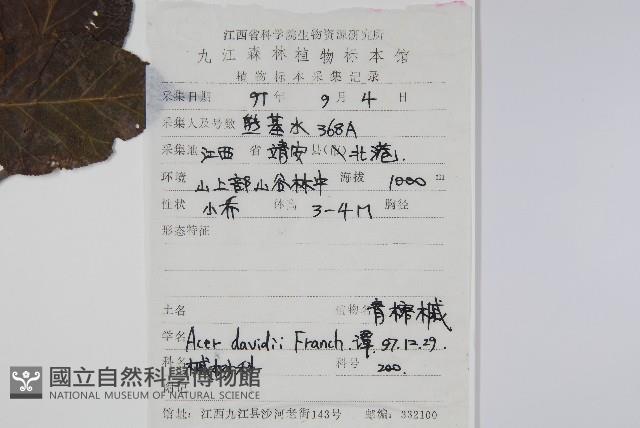 江西省科学院生物资源研究所
九江森林植物标本馆
植物标本采集记录
采集日期 97年 9月 4日
采集人及号数 熊基水 368A
采集地 江西 省 靖安 县(市) 北港
环境 山上部山谷林中 海拔 1000 m
性状 小乔 体高 3-4M 胸径
形态特征
土名 植物名 青榨槭
学名 Acer davidii Franch. 谭 97.12.29.
科名 槭树科 科号 200.
附记
國立自然科學博物館
NATIONAL MUSEUM OF NATURAL SCIENCE
馆址: 江西九江县沙河老街143号 邮编: 332100